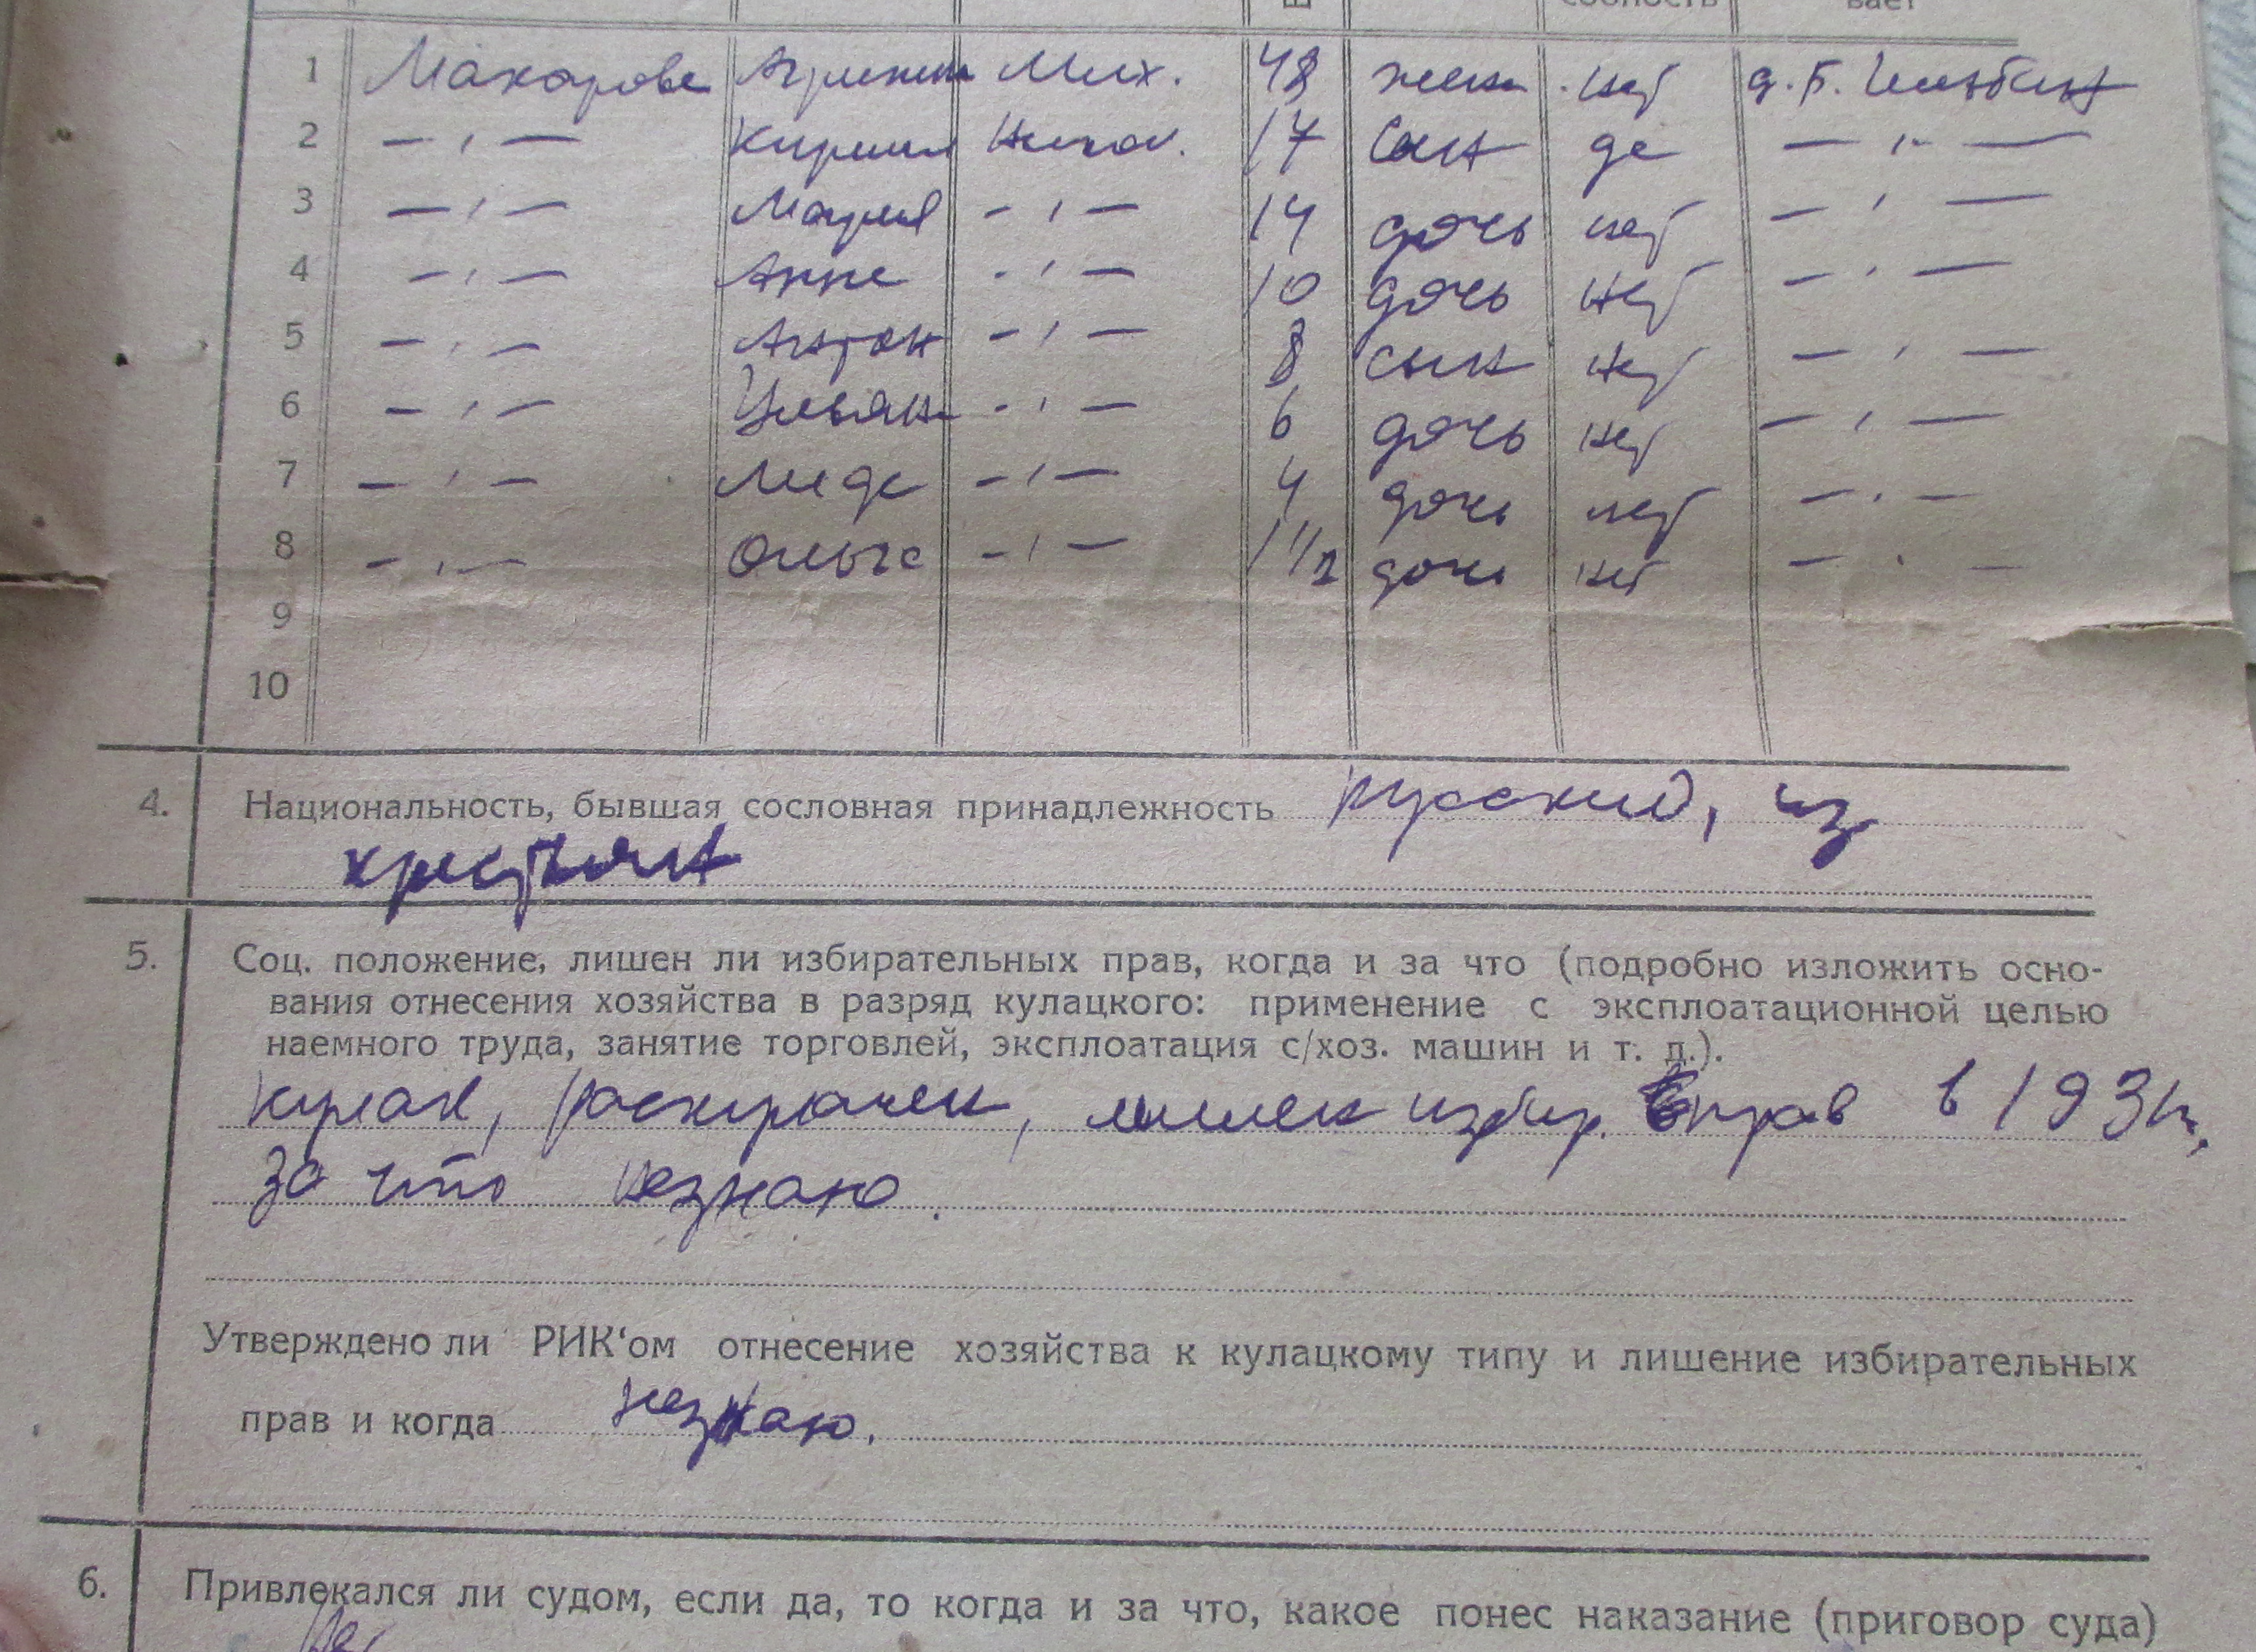 собность вает
1 Макарова Агрипина Мих. 48 жена нет д. Б.
2 — " — Кирилл Никол. 17 сын да — " —
3 — " — Мария — " — 14 дочь нет — " —
4 — " — Анна — " — 10 дочь нет — " —
5 — " — Антон — " — 8 сын нет — " —
6 — " — Ульяна — " — 6 дочь нет — " —
7 — " — Лида — " — 4 дочь нет — " —
8 — " — Ольга — " — 1 1/2 дочь нет — " —
9
10
4. Национальность, бывшая сословная принадлежность русский, из
крестьян
5. Соц. положение, лишен ли избирательных прав, когда и за что (подробно изложить осно-
вания отнесения хозяйства в разряд кулацкого: применение с эксплоатационной целью
наемного труда, занятие торговлей, эксплоатация с/хоз. машин и т. д.).
кулак, раскулачен, лишен избир. прав в 1931г.,
за что незнаю.
Утверждено ли РИК‘ом отнесение хозяйства к кулацкому типу и лишение избирательных
прав и когда незнаю.
6. Привлекался ли судом, если да, то когда и за что, какое понес наказание (приговор суда)